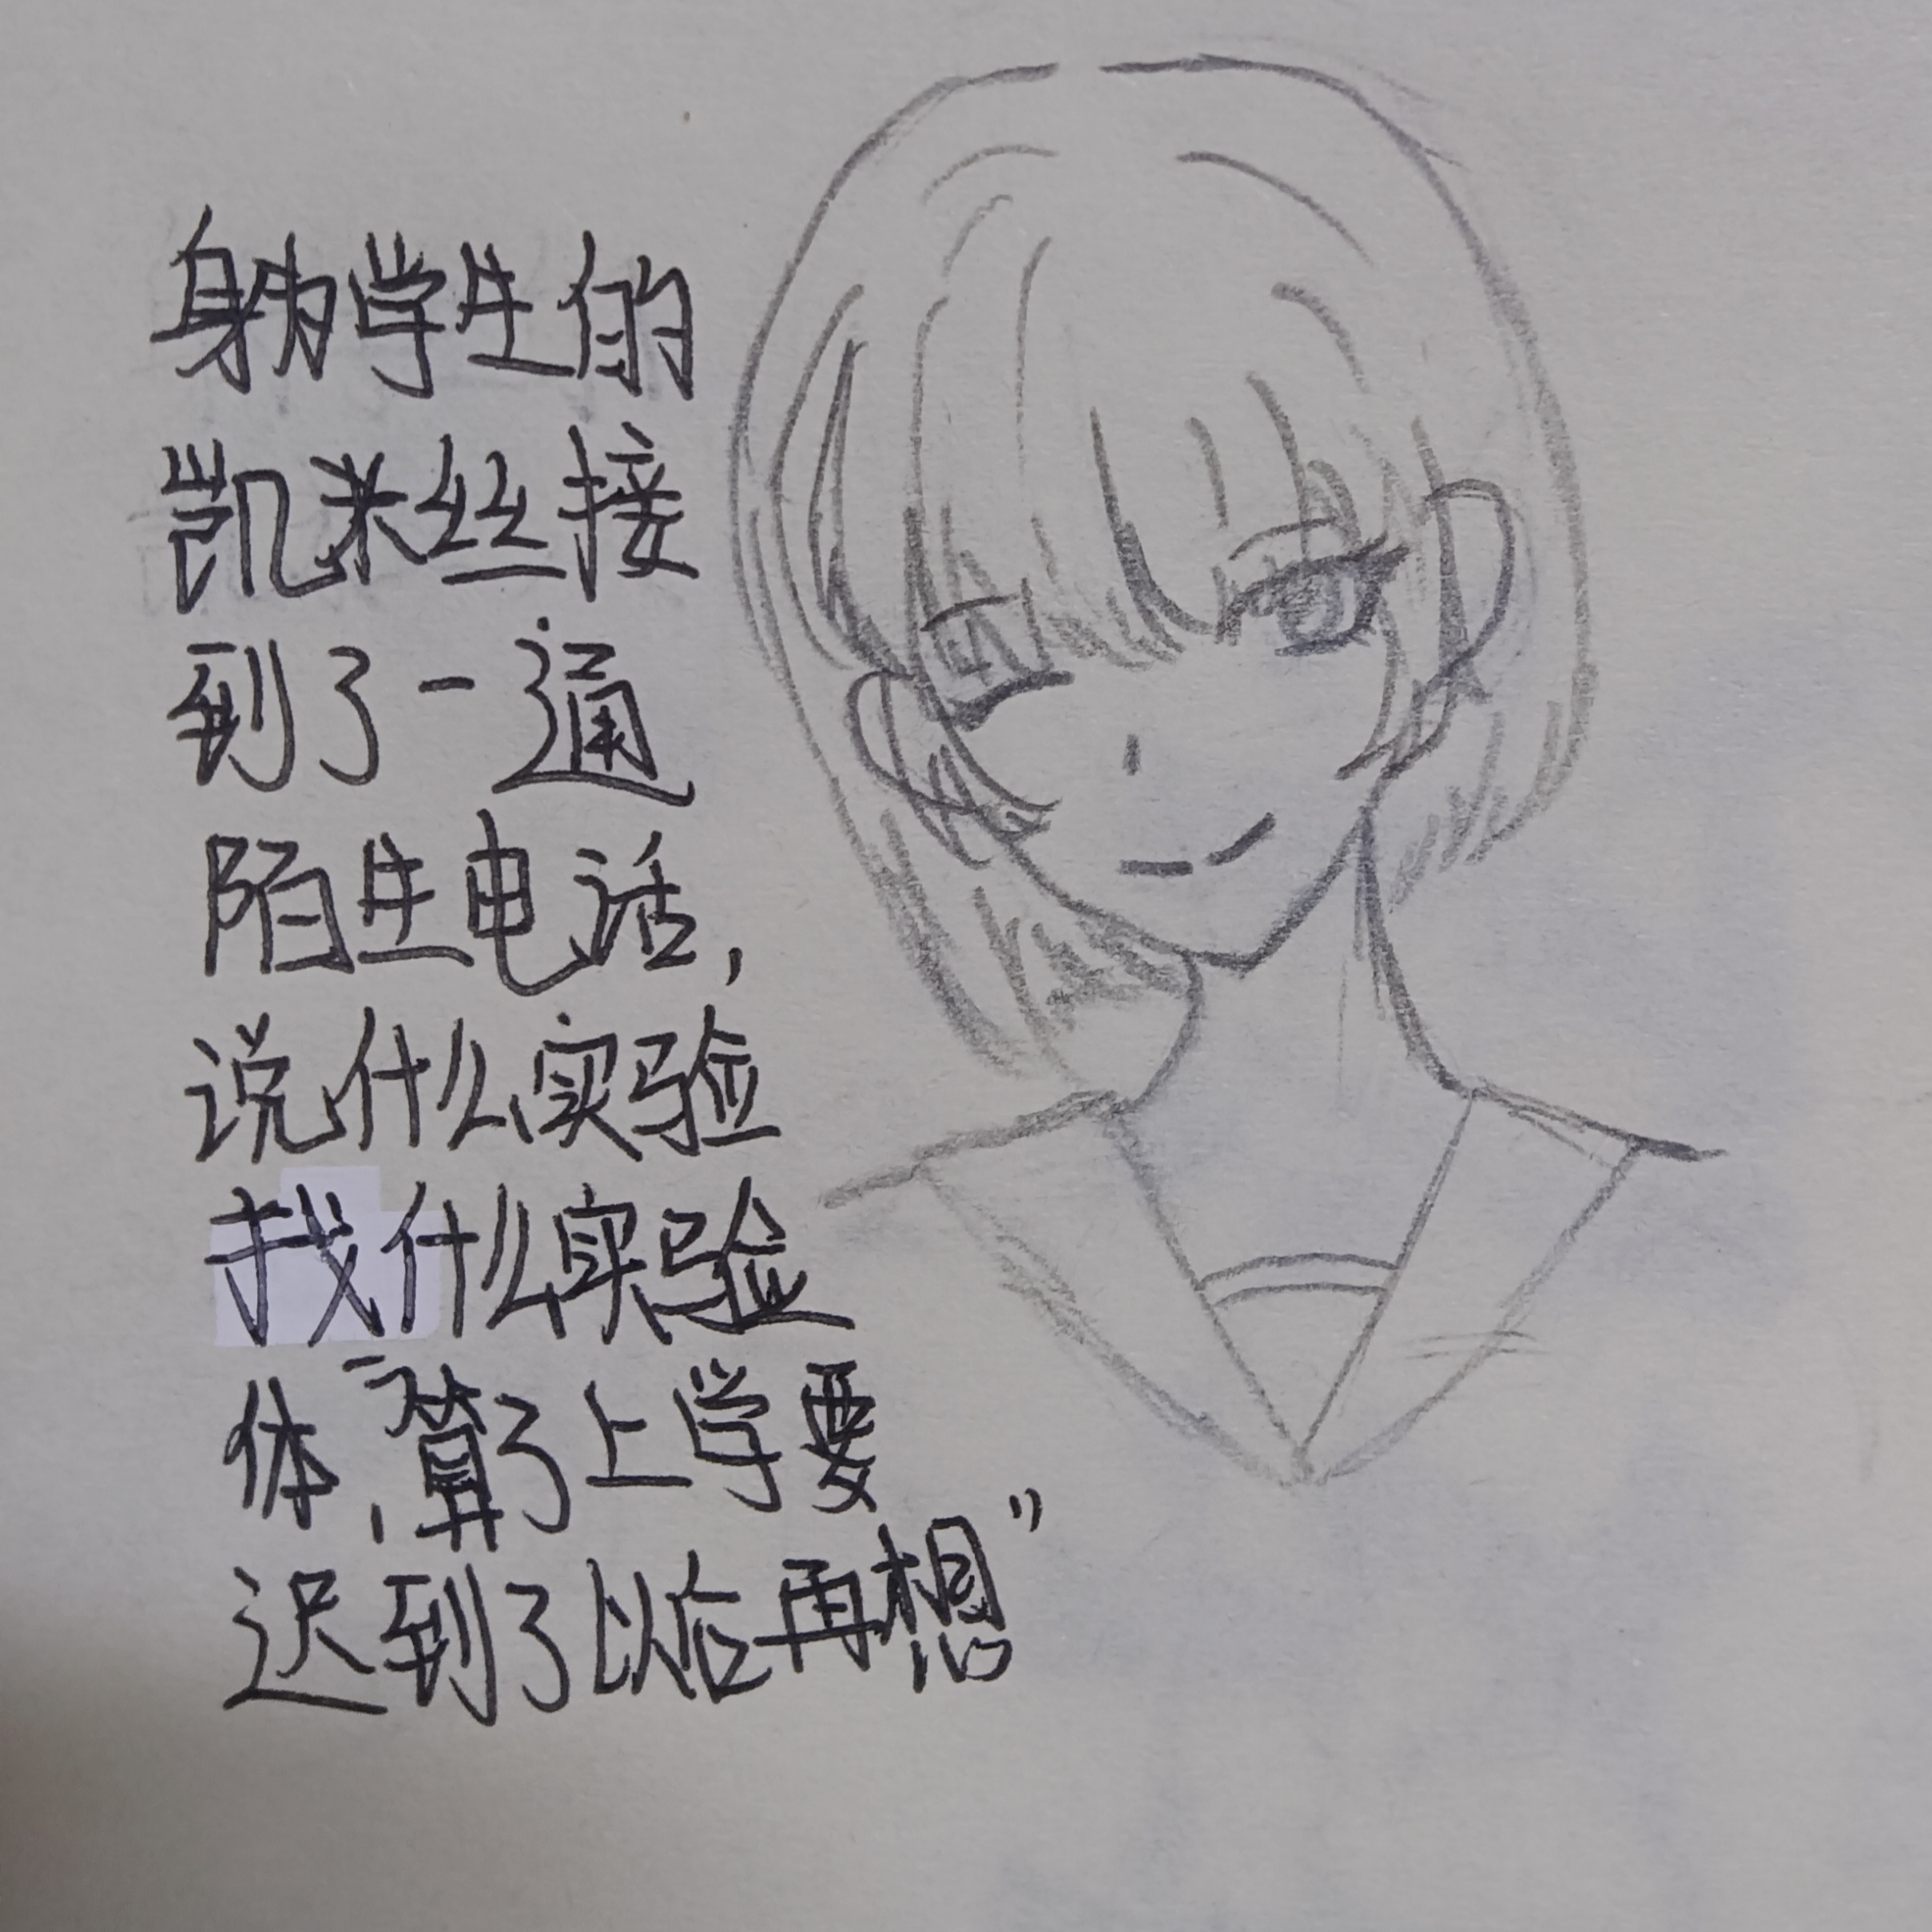 身为学生的
凯米丝接
到了一通
陌生电话,
说什么实验
找什么实验
体,“算了上学要
迟到了以后再想”